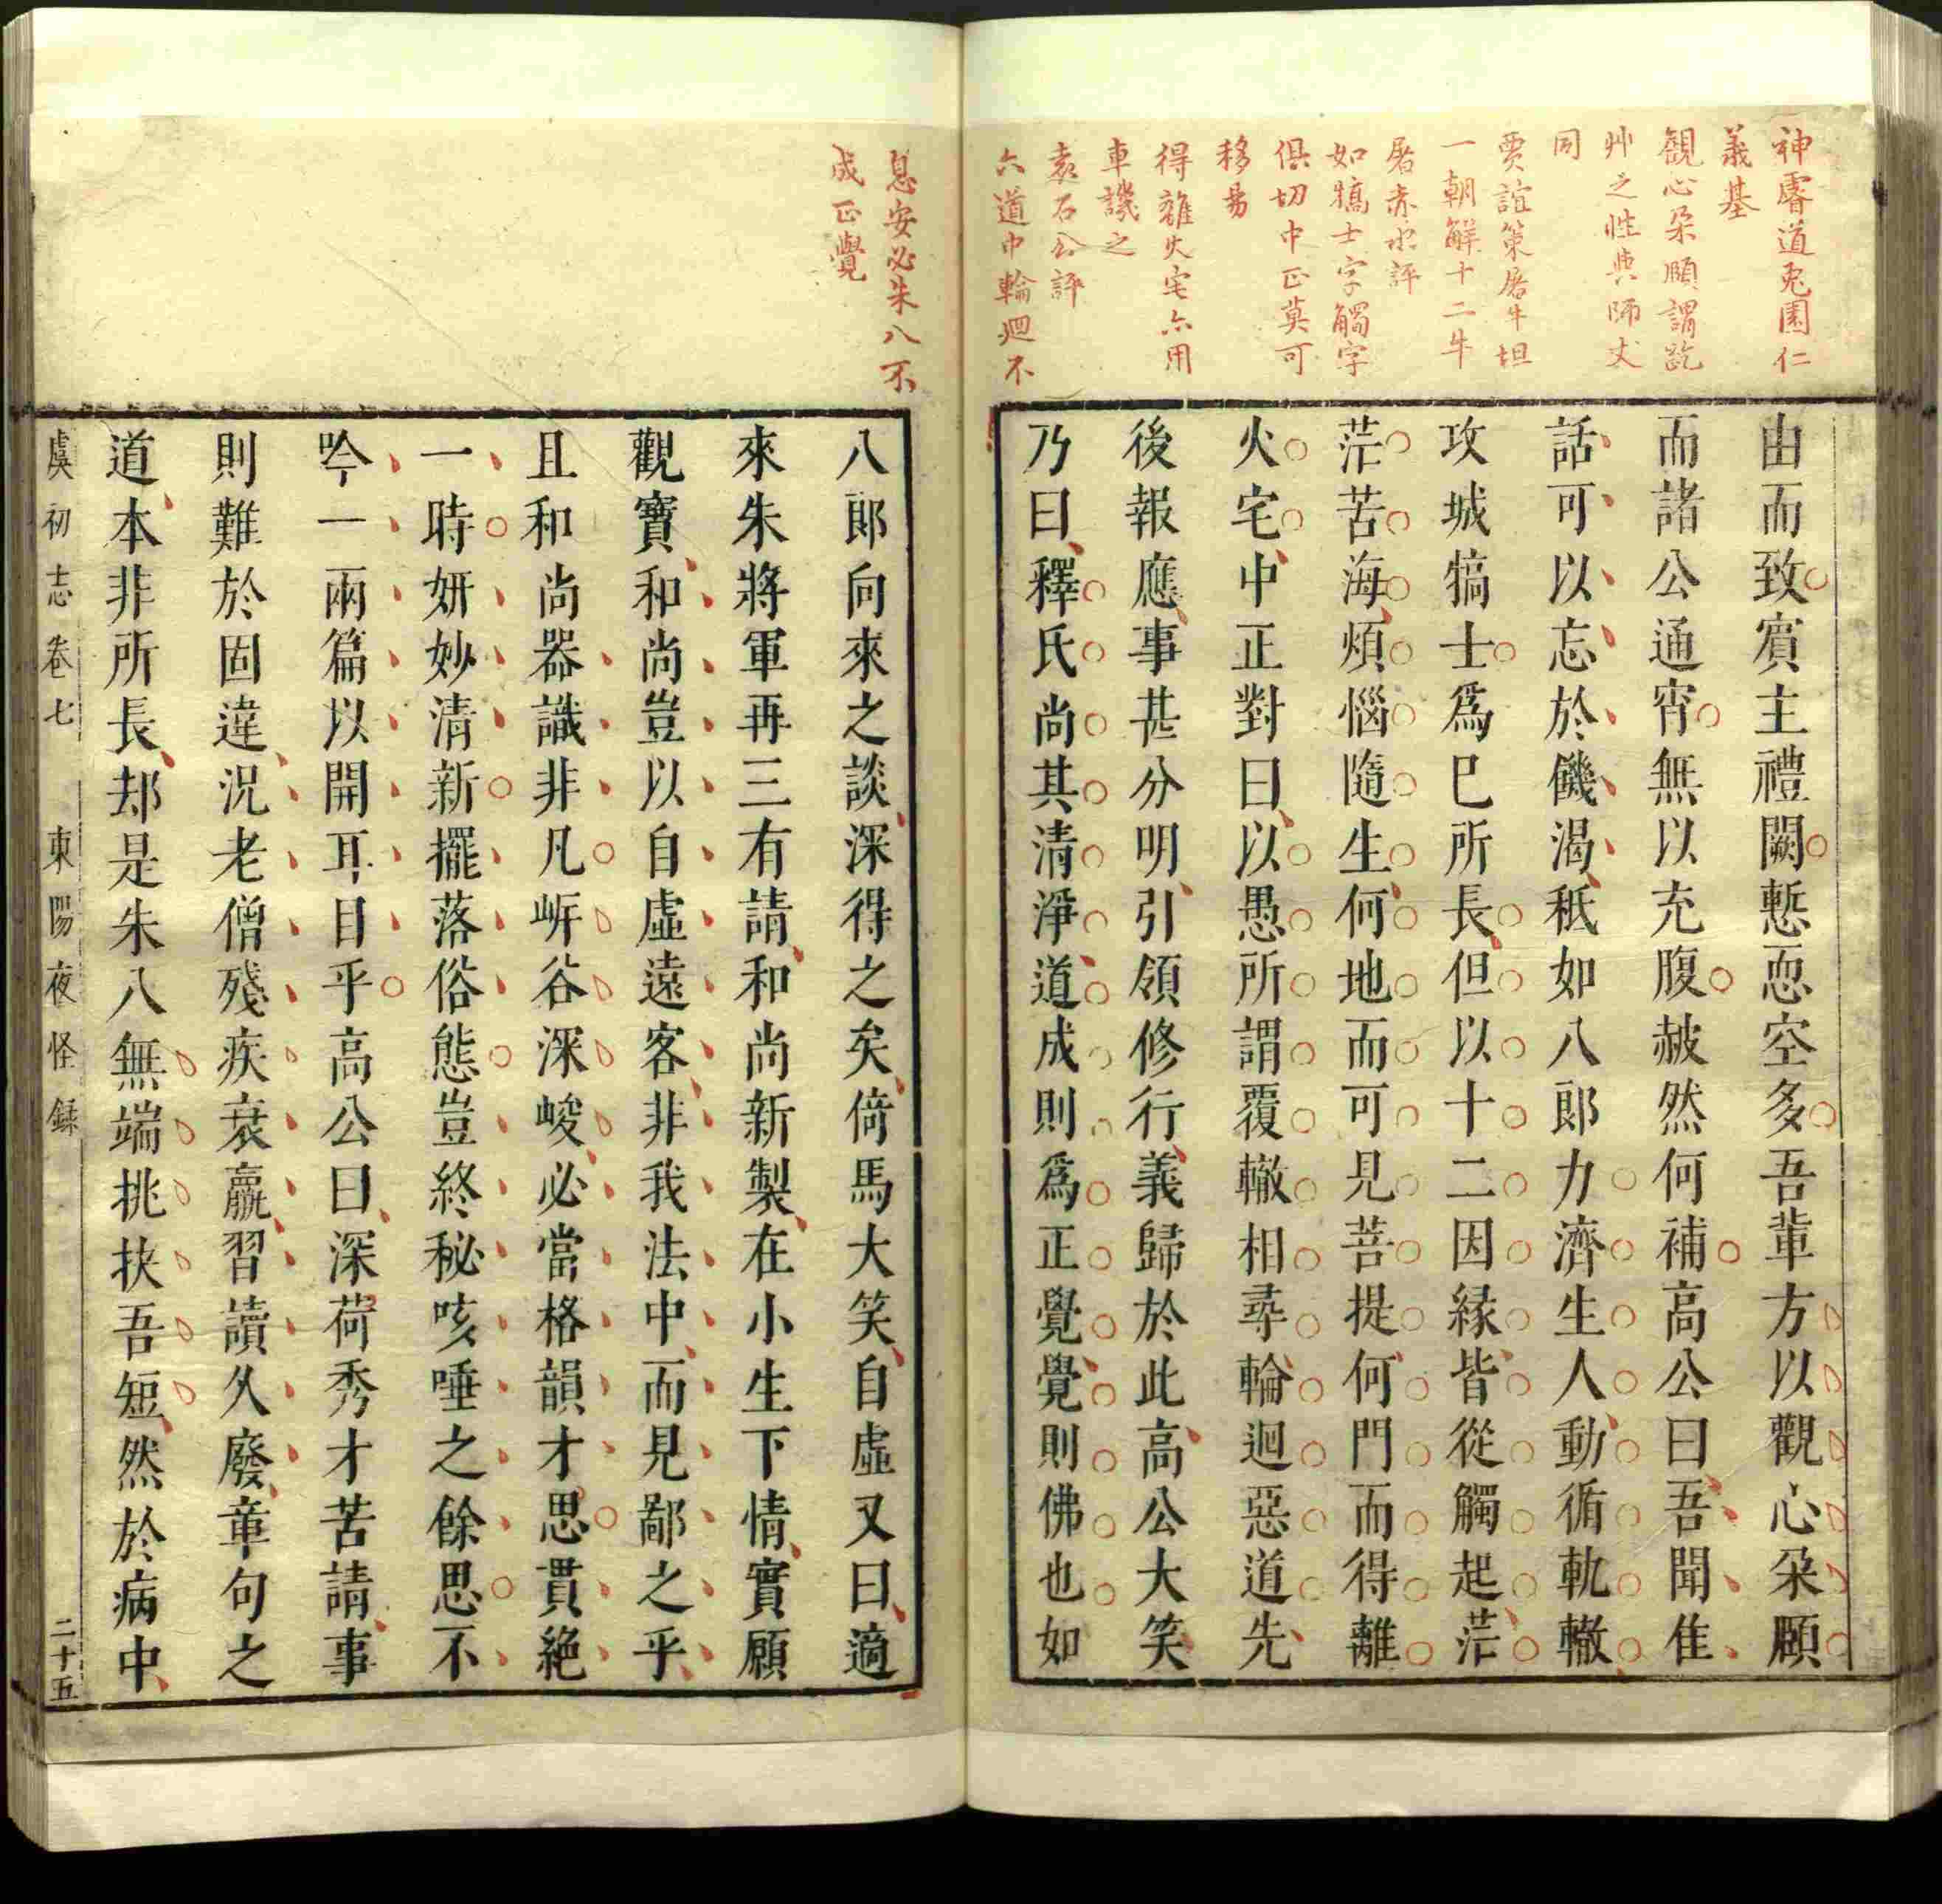 神睿道兎園仁
義基
觀心朶頤謂齕
艸之性與師丈
同
賈誼策屠牛坦
一朝解十二牛
屠赤水評
如犒士字觸字
俱切中正莫可
移易
得離火宅亦用
車譏之
袁石公評
六道中輪迴不
由而致賓主禮闕慙恧空多吾輩方以觀心朶頤
而諸公通宵無以充腹赧然何補高公曰吾聞隹
話可以忘於饑渴秖如八郎力濟生人動循軌轍
攻城犒士爲巳所長但以十二因緣皆從觸起茫
茫苦海煩惱隨生何地而可見菩提何門而得離
火宅中正對曰以愚所謂覆轍相尋輪迴惡道先
後報應事甚分明引領修行義歸於此高公大笑
乃曰釋氏尚其清淨道成則爲正覺覺則佛也如
息安必朱八不
成正覺
八郎向來之談深得之矣倚馬大笑自虛又曰適
來朱將軍再三有請和尚新製在小生下情實願
觀寶和尚豈以自虛遠客非我法中而見鄙之乎
且和尚器識非凡岍谷深峻必當格韻才思貫絕
一時妍妙清新擺落俗態豈終秘咳唾之餘思不
吟一兩篇以開耳目乎高公曰深荷秀才苦請事
則難於固違況老僧殘疾衰羸習讀久廢章句之
道本非所長却是朱八無端挑抉吾短然於病中
虞初志卷七 東陽夜怪錄 二十五